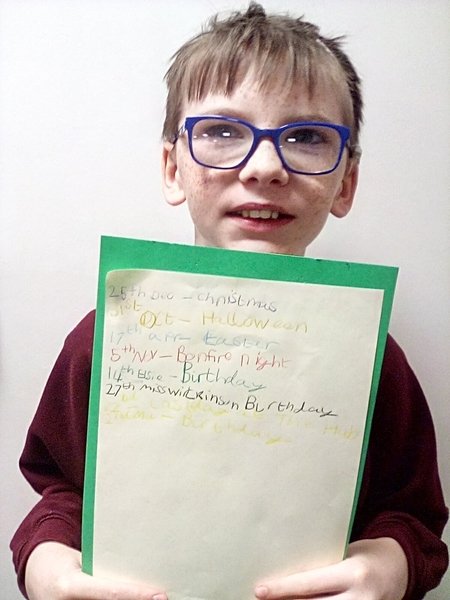 25th Dec - christmas
31st Oct - Halloween
17th apr - Easter
5th Nov - Bonfire night
14th - Birthday
27th miss wilkinson Burthday
The Hub
- Birthday